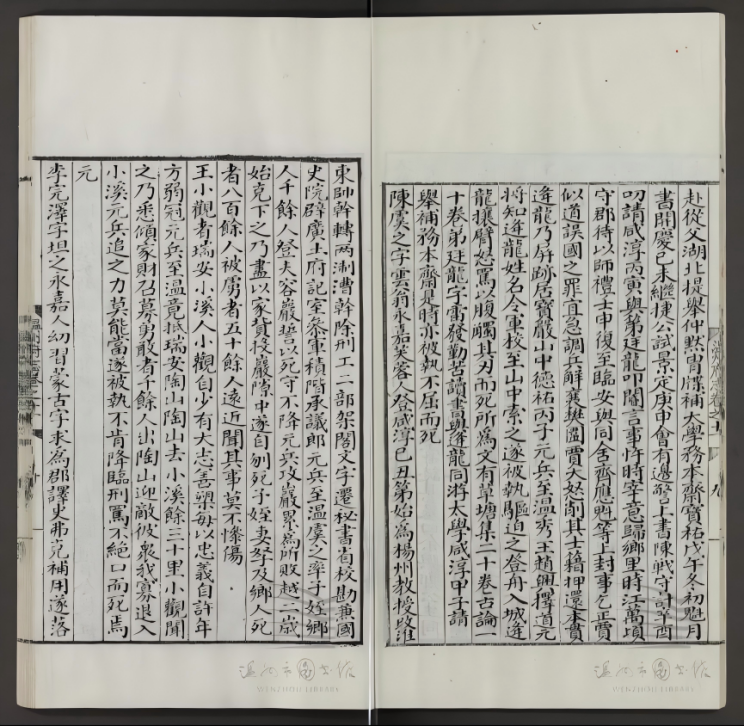 赴從父湖北提舉仲默胄牒補大學務本齋寶祐戊午冬初魁月
書開慶己未繼捷公試景定庚申會有邊警上書陳戰守計辛酉
叨請咸淳丙寅與弟廷龍叩閽言事忤時宰意歸鄉里時江萬頃
守郡待以師禮壬申復至臨安與同舍齊應魁等上封事乞正賈
似道誤國之罪宜急調兵解襄樊圍賈大怒削其士籍押還本貫
逢龍乃屏跡居寶嚴山中德祐丙子元兵至温秀王趙與擇道元
將知逢龍姓名令軍校至山中索之遂被執驅迫之登舟入城逢
龍攘臂怒罵以腹觸其刃而死所為文有草塘集二十卷古論一
十卷弟廷龍字雷發勤苦讀書與逢龍同游太學咸淳甲子請
舉補務本齋是時亦被執不屈而死
陳虞之字雲翁永嘉芙蓉人登咸淳己丑第始為楊州教授改淮
東帥幹轉兩淛漕幹除刑工二部架閣文字遷秘書省校勘兼國
史院辟廣王府記室叅軍積階承議郎元兵至温虞之率子姪鄉
人千餘人登夫容巖誓以死守不降元兵攻巖累為所敗越二歲
始克下之乃盡以家貲投巖隙中遂自刎死子姪妻孥及鄉人死
者八百餘人被虜者五十餘人遠近聞其事莫不慘傷
王小觀者瑞安小溪人小觀自少有大志善槊每以忠義自許年
方弱冠元兵至温竟抵瑞安陶山陶山去小溪餘三十里小觀聞
之乃悉傾家財召募勇敢者千餘人出陶山迎敵彼衆我寡退入
小溪元兵追之力莫能當遂被執不肯降臨刑罵不絕口而死焉
元
李完澤字坦之永嘉人幼習蒙古字求為郡譯史弗克補用遂落
温州市圖書館
WENZHOU LIBRARY
温州市圖書館
WENZHOU LIBRARY